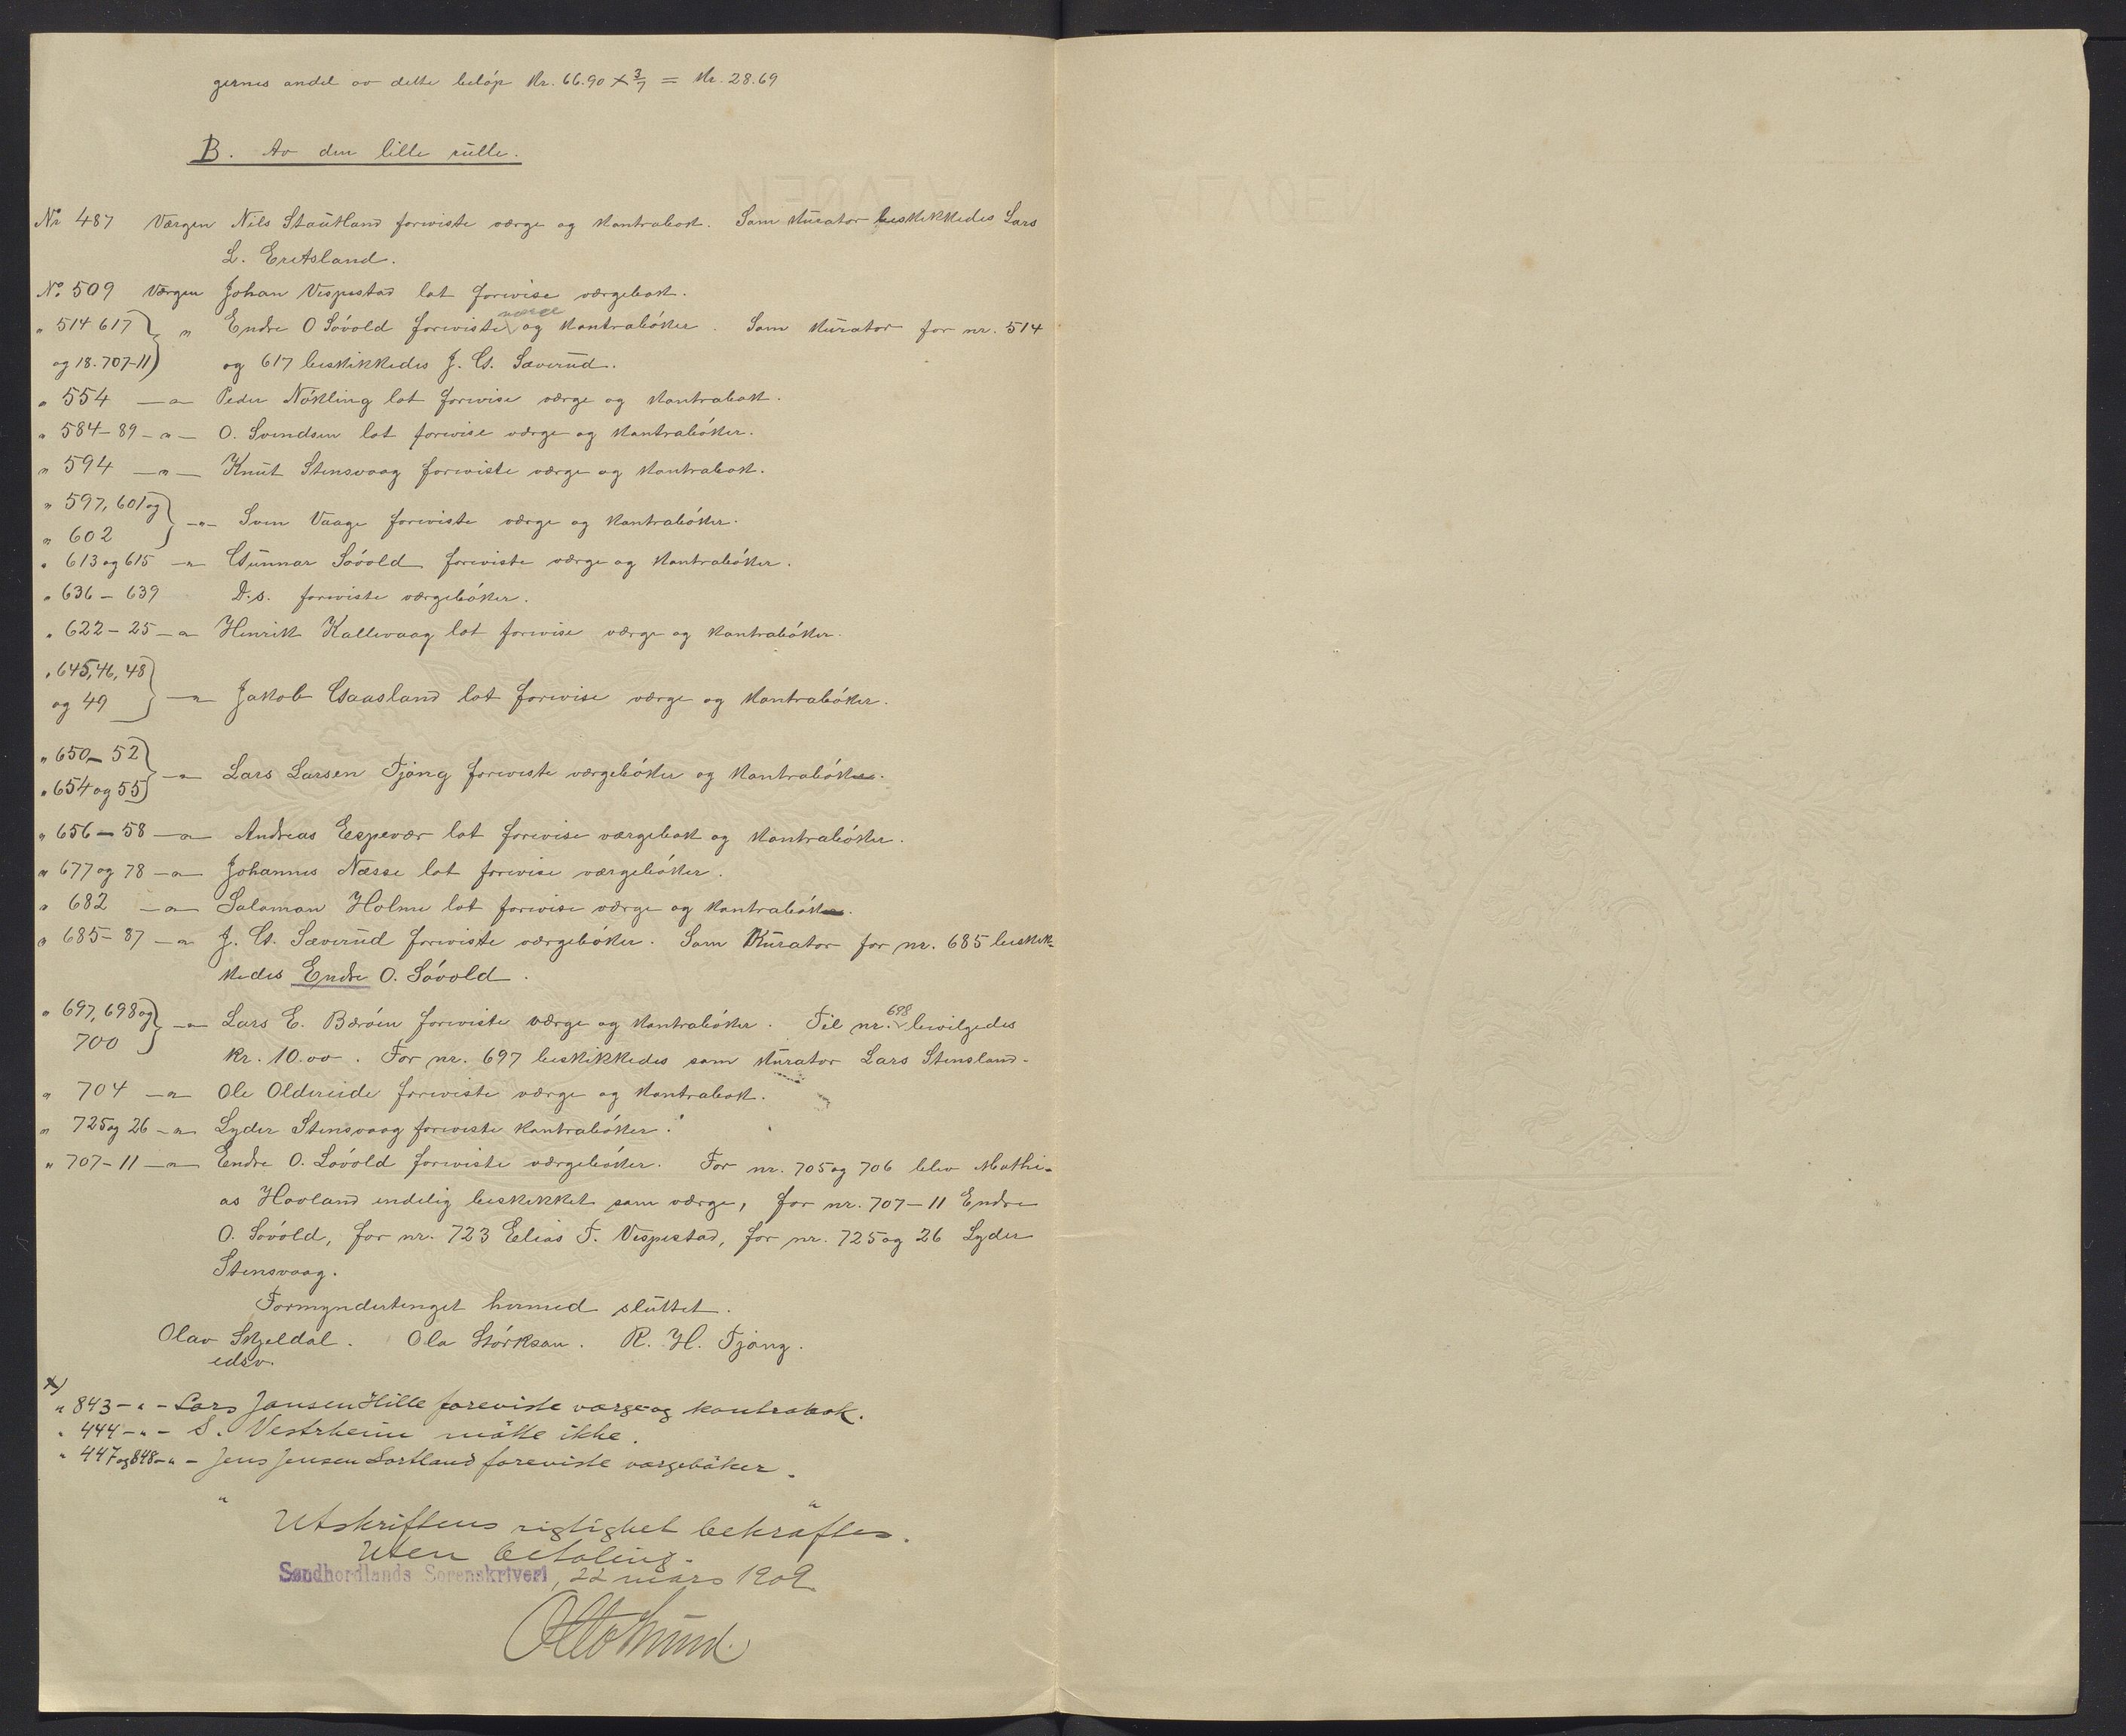 gernes andel av dette beløp Kr. 66.90 × 3/7 = Kr. 28.69
B. Av den lille rulle.
No 487 Værgen Nils Stautland foreviste værge og kontrabok. Som kurator beskikkedes Lars
L. Eretsland.
No. 509 Værgen Johan Vespestad lot forevise værgebok.
„ 514 617 } „ Endre O Søvold foreviste værge og kontrabøker. Som kurator for nr. 514
og 18. 707-11) og 617 beskikkedes J. G. Sæverud.
„ 554 —„— Peder Nøkling lot forevise værge og kontrabok.
„ 584-89 -„— O. Svendsen lot forevise værge og kontrabøker.
„ 594 —„— Knut Stensvaag foreviste værge og kontrabok.
„ 597, 601 og
„ 602 } -„- Sven Vaage foreviste værge og kontrabøker.
„ 613 og 615 —„ Gunnar Søvold foreviste værge og kontrabøker.
„ 636 - 639 D.s. foreviste værgebøker.
„ 622 - 25 —„ Henrik Kallevaag lot forevise værge og kontrabøker.
„ 645, 46, 48
og 49 } —„ Jakob Gaasland lot forevise værge og kontrabøker.
„ 650 - 52
„ 654 og 55 } —„ Lars Larsen Tjong foreviste værgebøker og kontrabøker.
„ 656 - 58 —„— Andreas Espevær lot forevise værgebok og kontrabøker.
„ 677 og 78 —„— Johannes Næsse lot forevise værgebøker.
„ 682 —„— Salamon Holme lot forevise værge og kontrabøker.
„ 685 - 87 —„ J. G. Sæverud foreviste værgebøker. Som Kurator for nr. 685 beskik-
kedes Endre O. Søvold.
„ 697, 698 og
700 } —„ Lars E. Bærøen foreviste værge og kontrabøker. Til nr. 698 bevilgedes
kr. 10.00. For nr. 697 beskikkedes som kurator Lars Stensland.
„ 704 —„ Ole Oldereide foreviste værge og kontrabok.
„ 725 og 26 -„ Lyder Stensvaag foreviste kontrabøker.
„ 707 - 11 —„ Endre O. Søvold foreviste værgebøker. For nr. 705 og 706 blev Mathi-
as Hovland endelig beskikket som værge, for nr. 707 - 11 Endre
O. Søvold, for nr. 723 Elias T. Vespestad, for nr. 725 og 26 Lyder
Stensvaag.
Formyndertinget hermed sluttet.
Olav Skjeldal. Ola Størksan. R. H. Tjong.
edsv.
×)
„ 843 - „ - Lars Jansen Hille foreviste værge og kontrabok.
„ 444 - „ - S. Vestrheim møtte ikke.
„ 447 og 848 - „ - Jens Jensen Lortland foreviste værgebøker.
Utskriftens rigtighet bekræftes.
Uten betaling.
Søndhordlands Sorenskriveri, 22 mars 1909